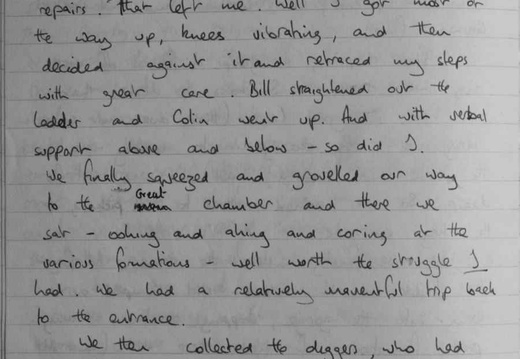 repairs. That left me. Well I got most of
the way up, knees vibrating, and then
decided against it and retraced my steps
with great care. Bill straightened out the
ladder and Colin went up. And with verbal
support above and below - so did I.
We finally squeezed and grovelled our way
to the Great chamber and there we
sat - oohing and ahing and coring at the
various formations - well worth the struggle I
had. We had a relatively uneventful trip back
to the entrance.
We then collected the diggers, who had